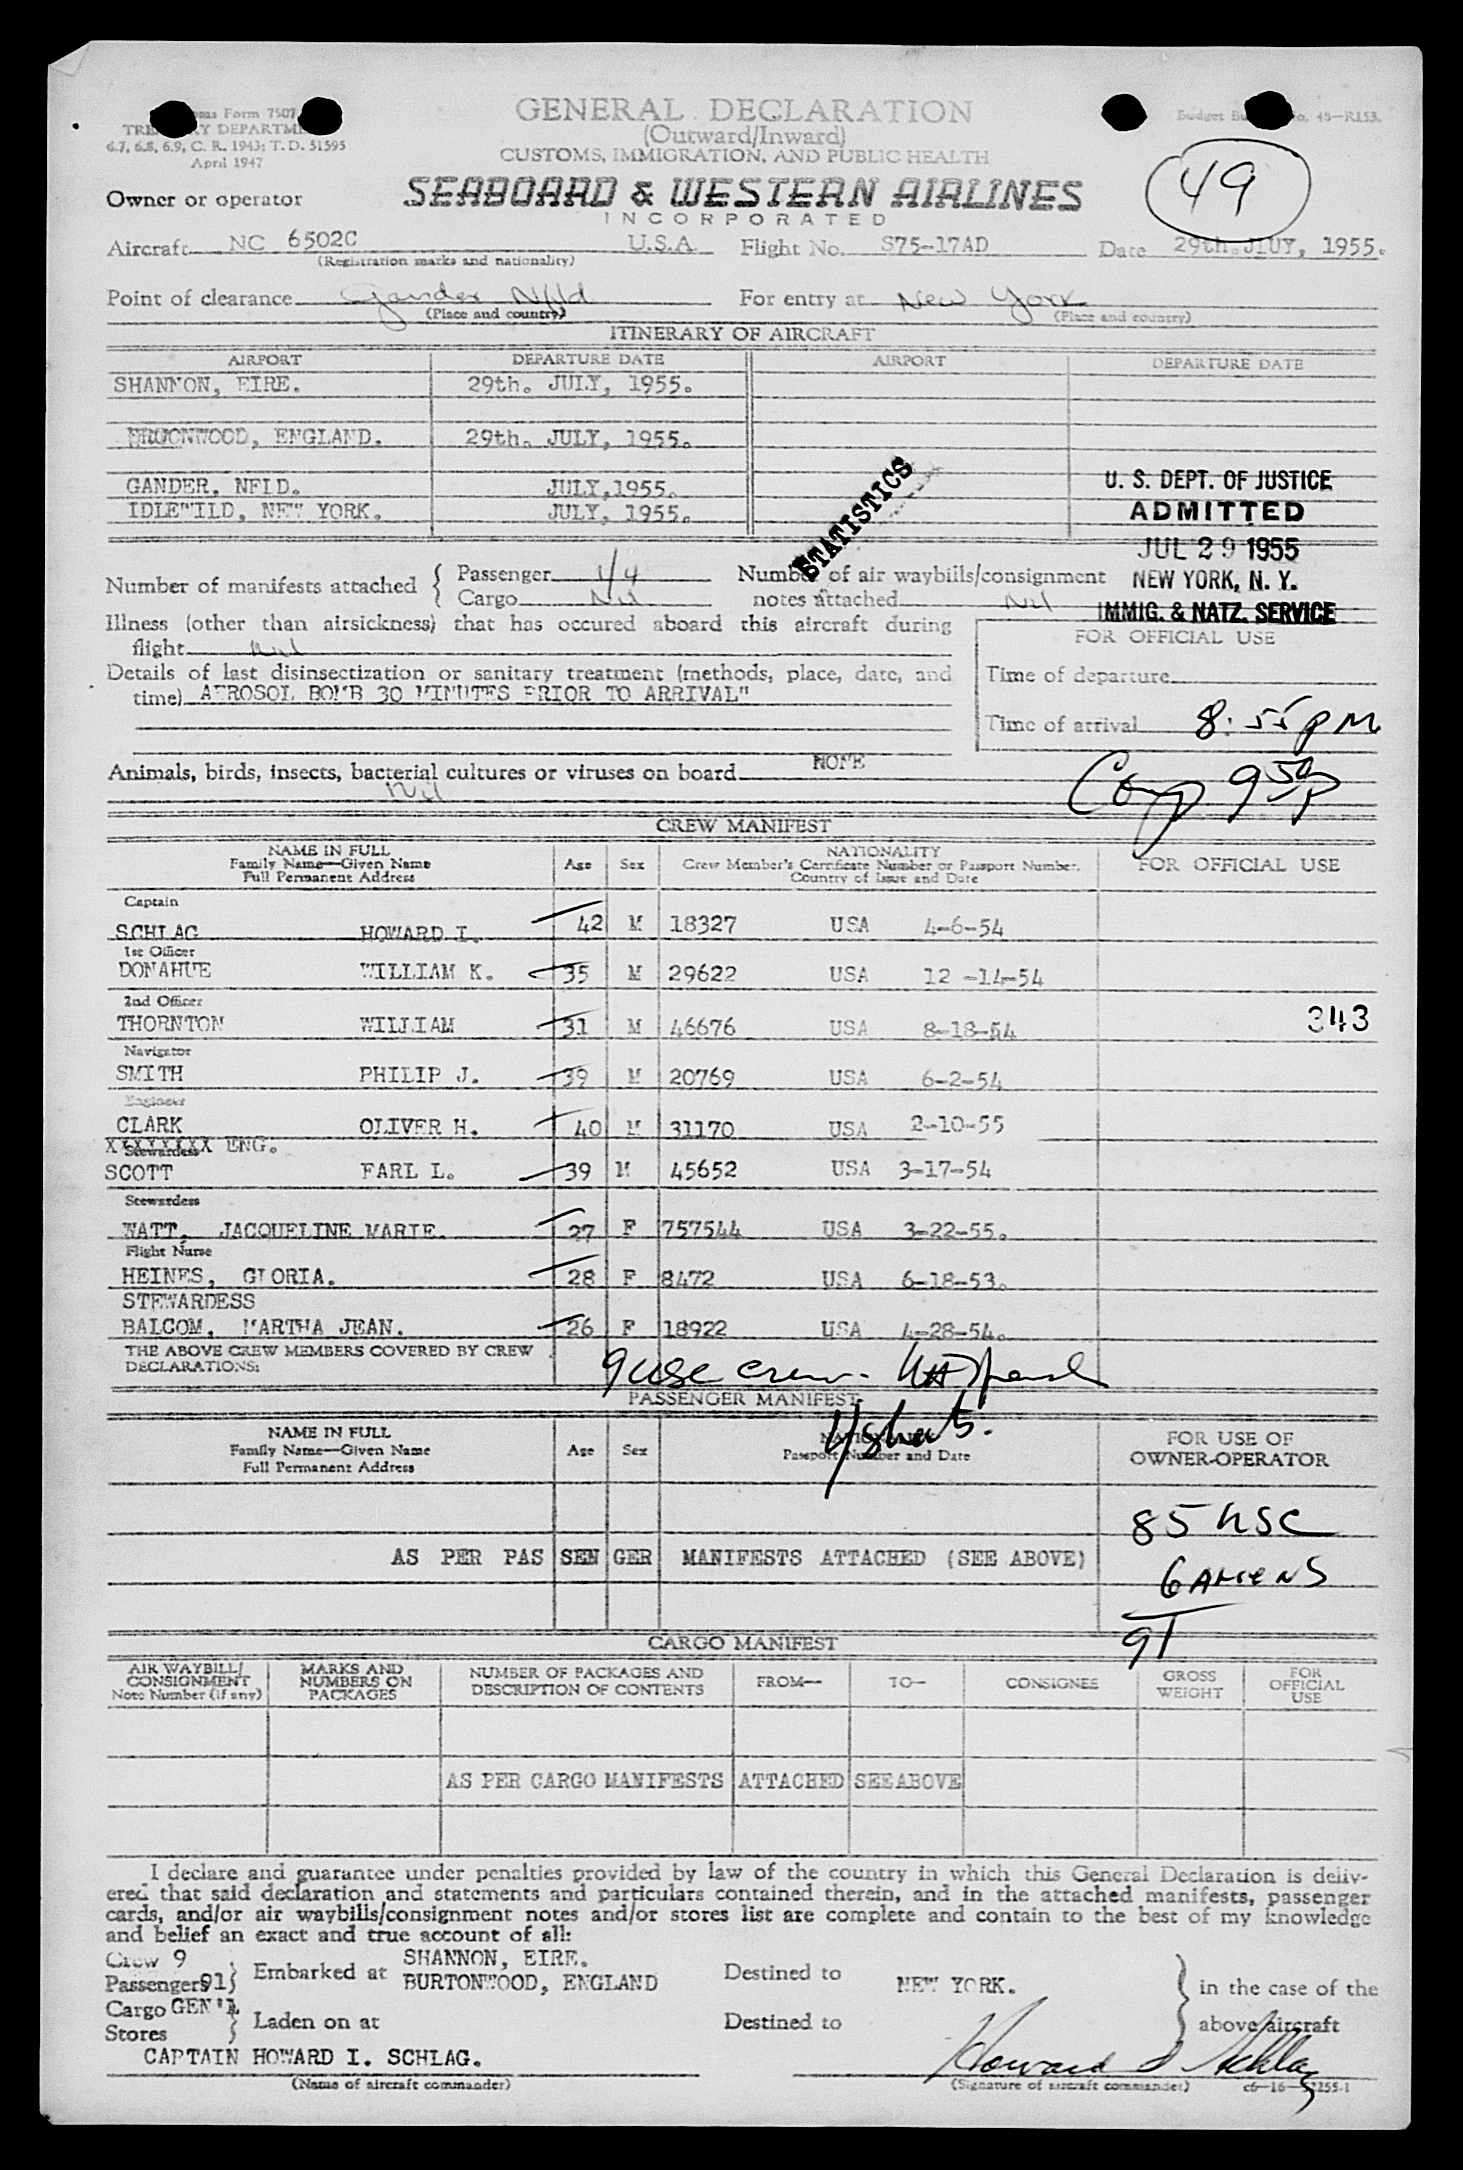 Customs Form 7507
TREASURY DEPARTMENT
6.7, 6.8, 6.9, C. R. 1943; T. D. 51595
April 1947
GENERAL DECLARATION
(Outward/Inward)
CUSTOMS, IMMIGRATION, AND PUBLIC HEALTH
Budget Bureau No. 48-R153.
49
Owner or operator
SEABOARD & WESTERN AIRLINES
INCORPORATED
Aircraft NC 6502C U.S.A. Flight No. S75-17AD Date 29th. JLUY, 1955.
(Registration marks and nationality)
Point of clearance Gander Nfld For entry at New York
(Place and country) (Place and country)
ITINERARY OF AIRCRAFT
AIRPORT DEPARTURE DATE AIRPORT DEPARTURE DATE
SHANNON, EIRE. 29th. JULY, 1955.
ENGLAND. 29th. JULY, 1955.
GANDER, NFLD. JULY, 1955.
IDLEWILD, NEW YORK. JULY, 1955.
STATISTICS
U. S. DEPT. OF JUSTICE
ADMITTED
JUL 29 1955
NEW YORK, N. Y.
IMMIG. & NATZ. SERVICE
Number of manifests attached { Passenger 1/4 Number of air waybills/consignment
Cargo Nil notes attached Nil
Illness (other than airsickness) that has occured aboard this aircraft during
flight Nil
FOR OFFICIAL USE
Details of last disinsectization or sanitary treatment (methods, place, date, and
time) AEROSOL BOMB 30 MINUTES PRIOR TO ARRIVAL"
Time of departure
Time of arrival 8:55 PM
Animals, birds, insects, bacterial cultures or viruses on board NONE
Nil
Comp 9 50 P
CREW MANIFEST
NAME IN FULL
Family Name—Given Name
Full Permanent Address
Age Sex
NATIONALITY
Crew Member's Certificate Number or Passport Number.
Country of Issue and Date
FOR OFFICIAL USE
Captain
SCHLAG HOWARD I. 42 M 18327 USA 4-6-54
1st Officer
DONAHUE WILLIAM K. 35 M 29622 USA 12 -14-54
2nd Officer
THORNTON WILLIAM 31 M 46676 USA 8-18-54
343
Navigator
SMITH PHILIP J. 39 M 20769 USA 6-2-54
Engineer
CLARK OLIVER H. 40 M 31170 USA 2-10-55
Stewardess ENG.
SCOTT EARL L. 39 M 45652 USA 3-17-54
Stewardess
WATT, JACQUELINE MARIE. 27 F 757544 USA 3-22-55.
Flight Nurse
HEINES, GLORIA. 28 F 8472 USA 6-18-53.
STEWARDESS
BALCOM, MARTHA JEAN. 26 F 18922 USA 4-28-54.
THE ABOVE CREW MEMBERS COVERED BY CREW
DECLARATIONS:
9 USC crew.
PASSENGER MANIFEST
4 sheets.
NAME IN FULL
Family Name—Given Name
Full Permanent Address
Age Sex
NATIONALITY
Passport Number and Date
FOR USE OF
OWNER-OPERATOR
85 USC
AS PER PASSENGER MANIFESTS ATTACHED (SEE ABOVE)
6 ALIENS
91
CARGO MANIFEST
AIR WAYBILL/
CONSIGNMENT
Note Number (if any)
MARKS AND
NUMBERS ON
PACKAGES
NUMBER OF PACKAGES AND
DESCRIPTION OF CONTENTS
FROM—
TO—
CONSIGNEE
GROSS
WEIGHT
FOR
OFFICIAL
USE
AS PER CARGO MANIFESTS ATTACHED SEE ABOVE
I declare and guarantee under penalties provided by law of the country in which this General Declaration is deliv-
ered that said declaration and statements and particulars contained therein, and in the attached manifests, passenger
cards, and/or air waybills/consignment notes and/or stores list are complete and contain to the best of my knowledge
and belief an exact and true account of all:
Crew 9
Passengers 91 } Embarked at SHANNON, EIRE.
BURTONWOOD, ENGLAND Destined to NEW YORK. } in the case of the
Cargo GEN'L
Stores } Laden on at Destined to above aircraft
CAPTAIN HOWARD I. SCHLAG. Howard I Schlag
(Name of aircraft commander) (Signature of aircraft commander)